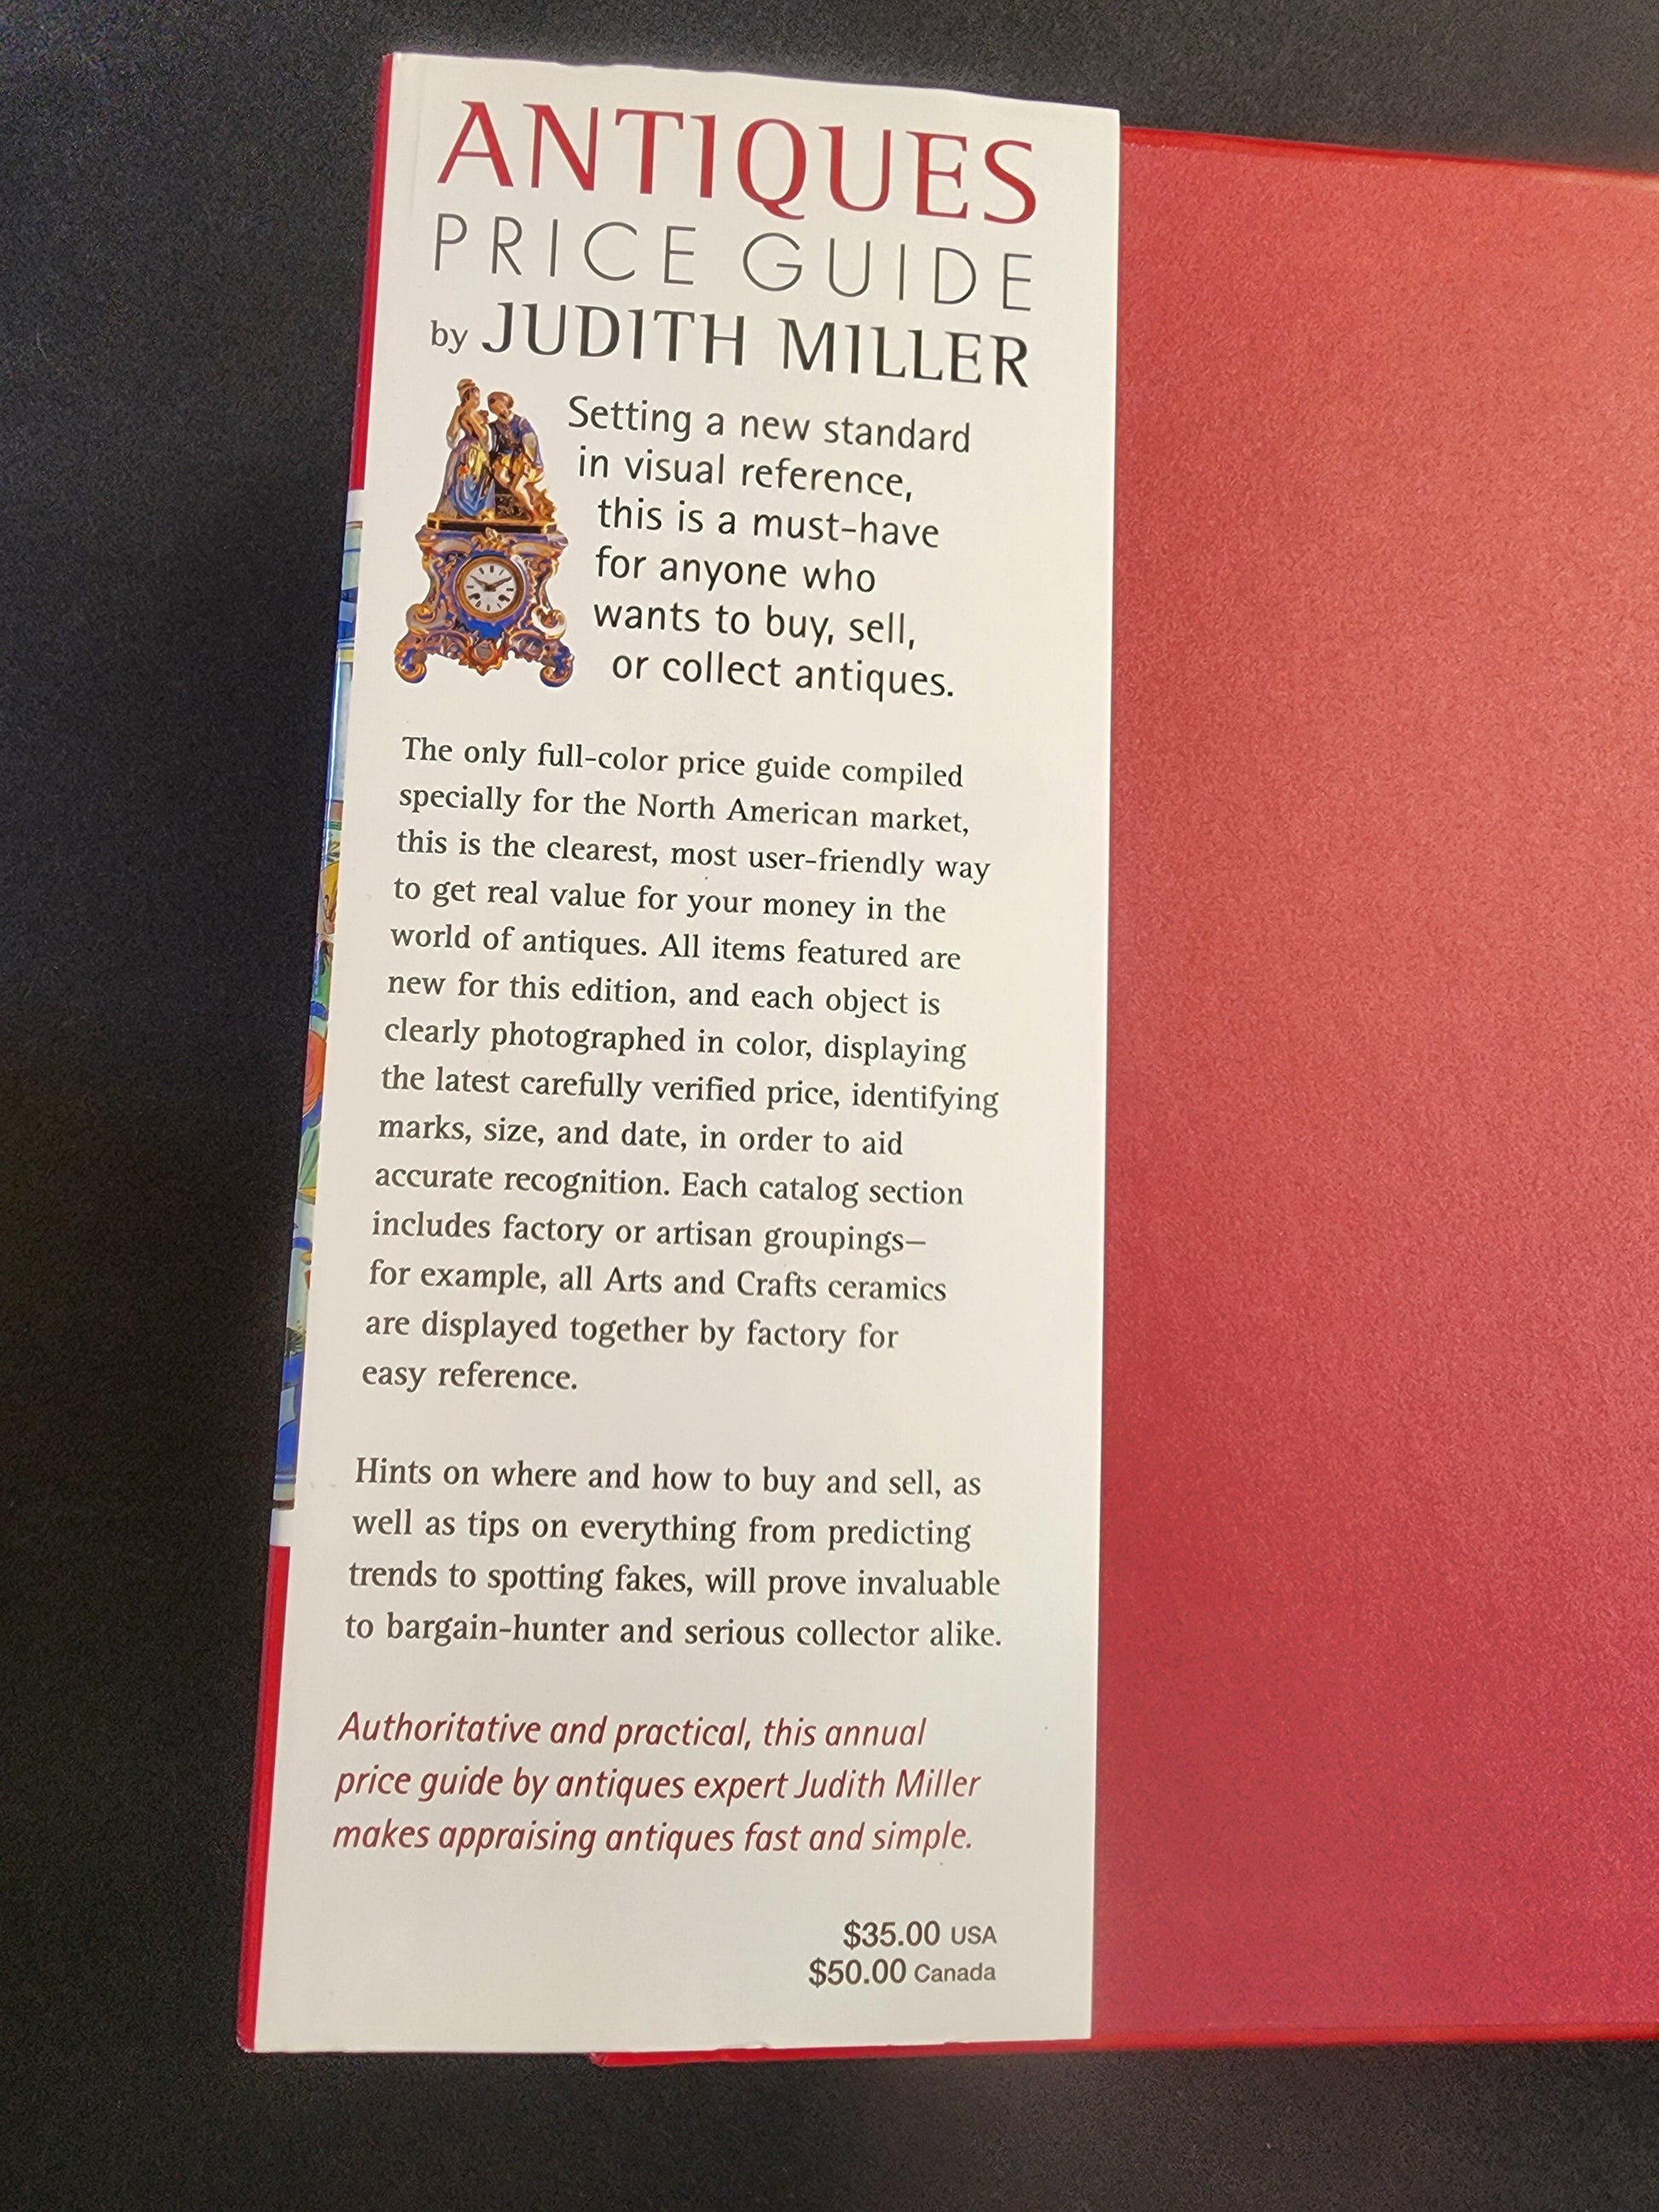 ANTIQUES
PRICE GUIDE
by JUDITH MILLER
Setting a new standard
in visual reference,
this is a must-have
for anyone who
wants to buy, sell,
or collect antiques.
The only full-color price guide compiled
specially for the North American market,
this is the clearest, most user-friendly way
to get real value for your money in the
world of antiques. All items featured are
new for this edition, and each object is
clearly photographed in color, displaying
the latest carefully verified price, identifying
marks, size, and date, in order to aid
accurate recognition. Each catalog section
includes factory or artisan groupings—
for example, all Arts and Crafts ceramics
are displayed together by factory for
easy reference.
Hints on where and how to buy and sell, as
well as tips on everything from predicting
trends to spotting fakes, will prove invaluable
to bargain-hunter and serious collector alike.
Authoritative and practical, this annual
price guide by antiques expert Judith Miller
makes appraising antiques fast and simple.
$35.00 USA
$50.00 Canada